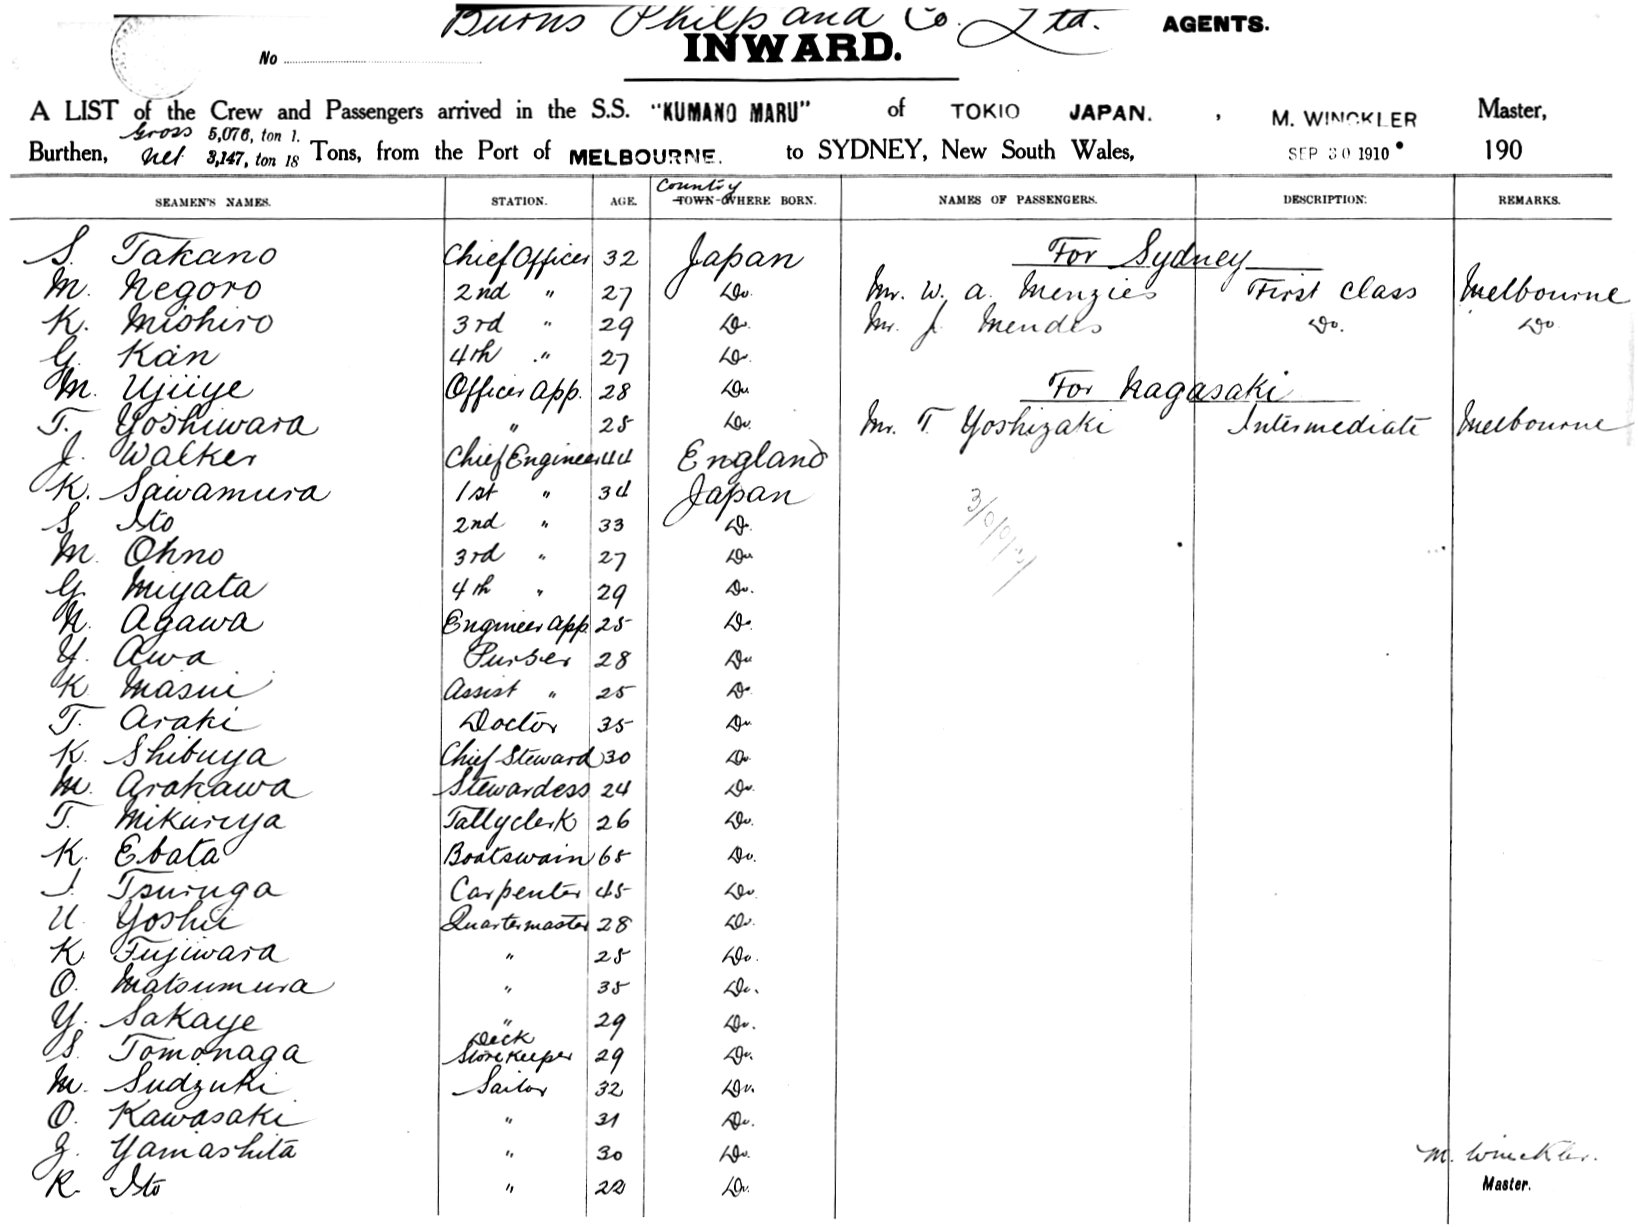 Burns Philp and Co. Ltd. AGENTS.
No
INWARD.
A LIST of the Crew and Passengers arrived in the S.S. "KUMANO MARU" of TOKIO JAPAN. , M. WINCKLER Master,
Burthen, Gross 5,076, ton 1. Net 3,147, ton 18 Tons, from the Port of MELBOURNE. to SYDNEY, New South Wales, SEP 30 1910 190
SEAMEN'S NAMES. STATION. AGE. Country TOWN WHERE BORN. NAMES OF PASSENGERS. DESCRIPTION: REMARKS.
S. Takano Chief Officer 32 Japan For Sydney
M. Negoro 2nd " 27 Do. Mr. W. A. Menzies First Class Melbourne
K. Mishiro 3rd " 29 Do. Mr. J. Mendes Do. Do
G. Kan 4th " 27 Do.
M. Ujiiye Officer App. 28 Do For Nagasaki
T. Yoshiwara " 25 Do. Mr. T. Yoshizaki Intermediate Melbourne
J. Walker Chief Engineer 44 England
K. Sawamura 1st " 34 Japan
S. Ito 2nd " 33 Do.
M. Ohno 3rd " 27 Do
G. Miyata 4th " 29 Do.
N. Agawa Engineer App. 25 Do.
Y. Awa Purser 28 Do
K. Masui Assist " 25 Do
T. Araki Doctor 35 Do
K. Shibuya Chief Steward 30 Do
M. Arakawa Stewardess 24 Do.
T. Mikuriya Tallyclerk 26 Do.
K. Ebata Boatswain 65 Do.
Tsuruga Carpenter 45 Do.
U. Yoshii Quartermaster 28 Do.
K. Fujiwara " 25 Do.
O. Matsumura " 35 Do.
Y. Sakaye " 29 Do.
S. Tomonaga Deck Storekeeper 29 Do.
M. Sudzuki Sailor 32 Do.
O. Kawasaki " 31 Do.
Z. Yamashita " 30 Do.
K. Ito " 22 Do.
M. Winckler.
Master.